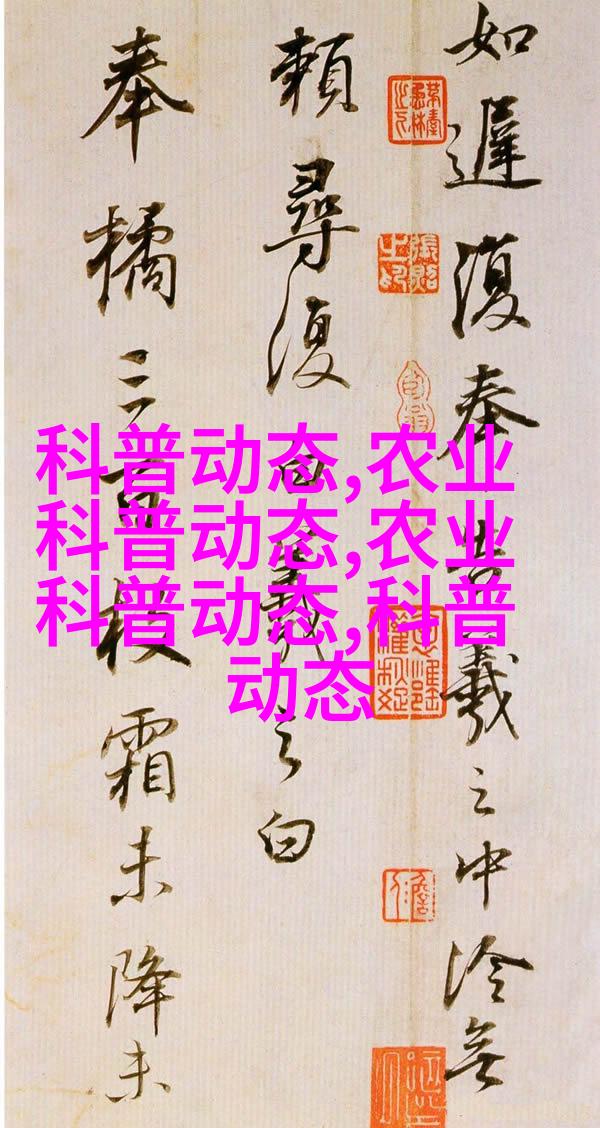 科普动态,农业
科普动态,农业
科普动态,科普
动态
如遲復奉告羲之中冷無
賴尋復白羲之白
奉橘三百枚霜未降未